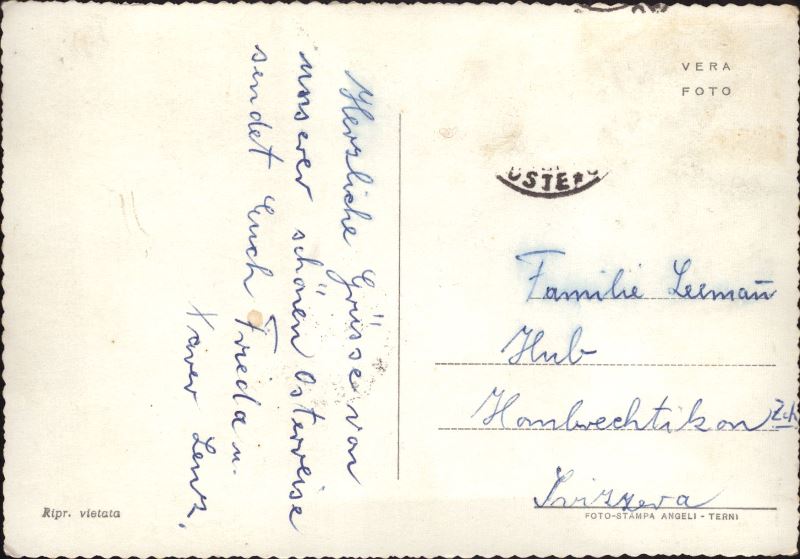 Herzliche Grüsse von
unserer schönen Osterreise
sendet Euch Frieda u.
Xaver Lenz.
VERA
FOTO
OSTE
Familie Leeman̄
Hub
Hombrechtikon Zch
Svizzera
FOTO-STAMPA ANGELI - TERNI
Ripr. vietata